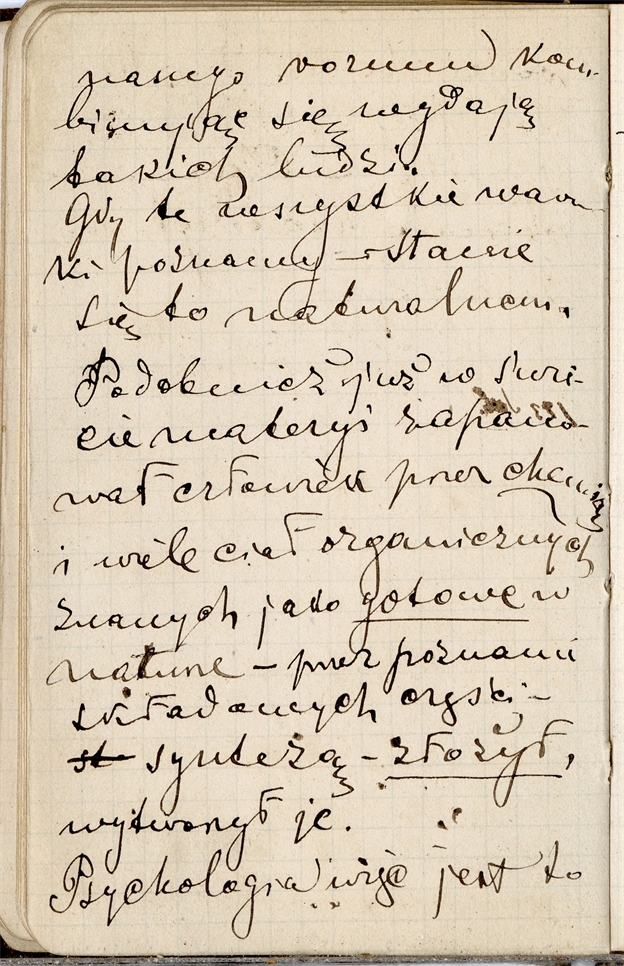 naszego rozumu) kom-
binujące się wydają
takich ludzi.
Gdy te wszystkie warun-
ki poznamy – stanie
się to naturalnem.
Podobnież już w świe-
cie materyi zapano-
wał człowiek przez chemię
i wiele ciał organicznych
znanych jako gotowe w
naturze – przez poznanie
składowych cząstki-
st syntezą – złożył,
wytworzył je.
Psychologia więc jest to